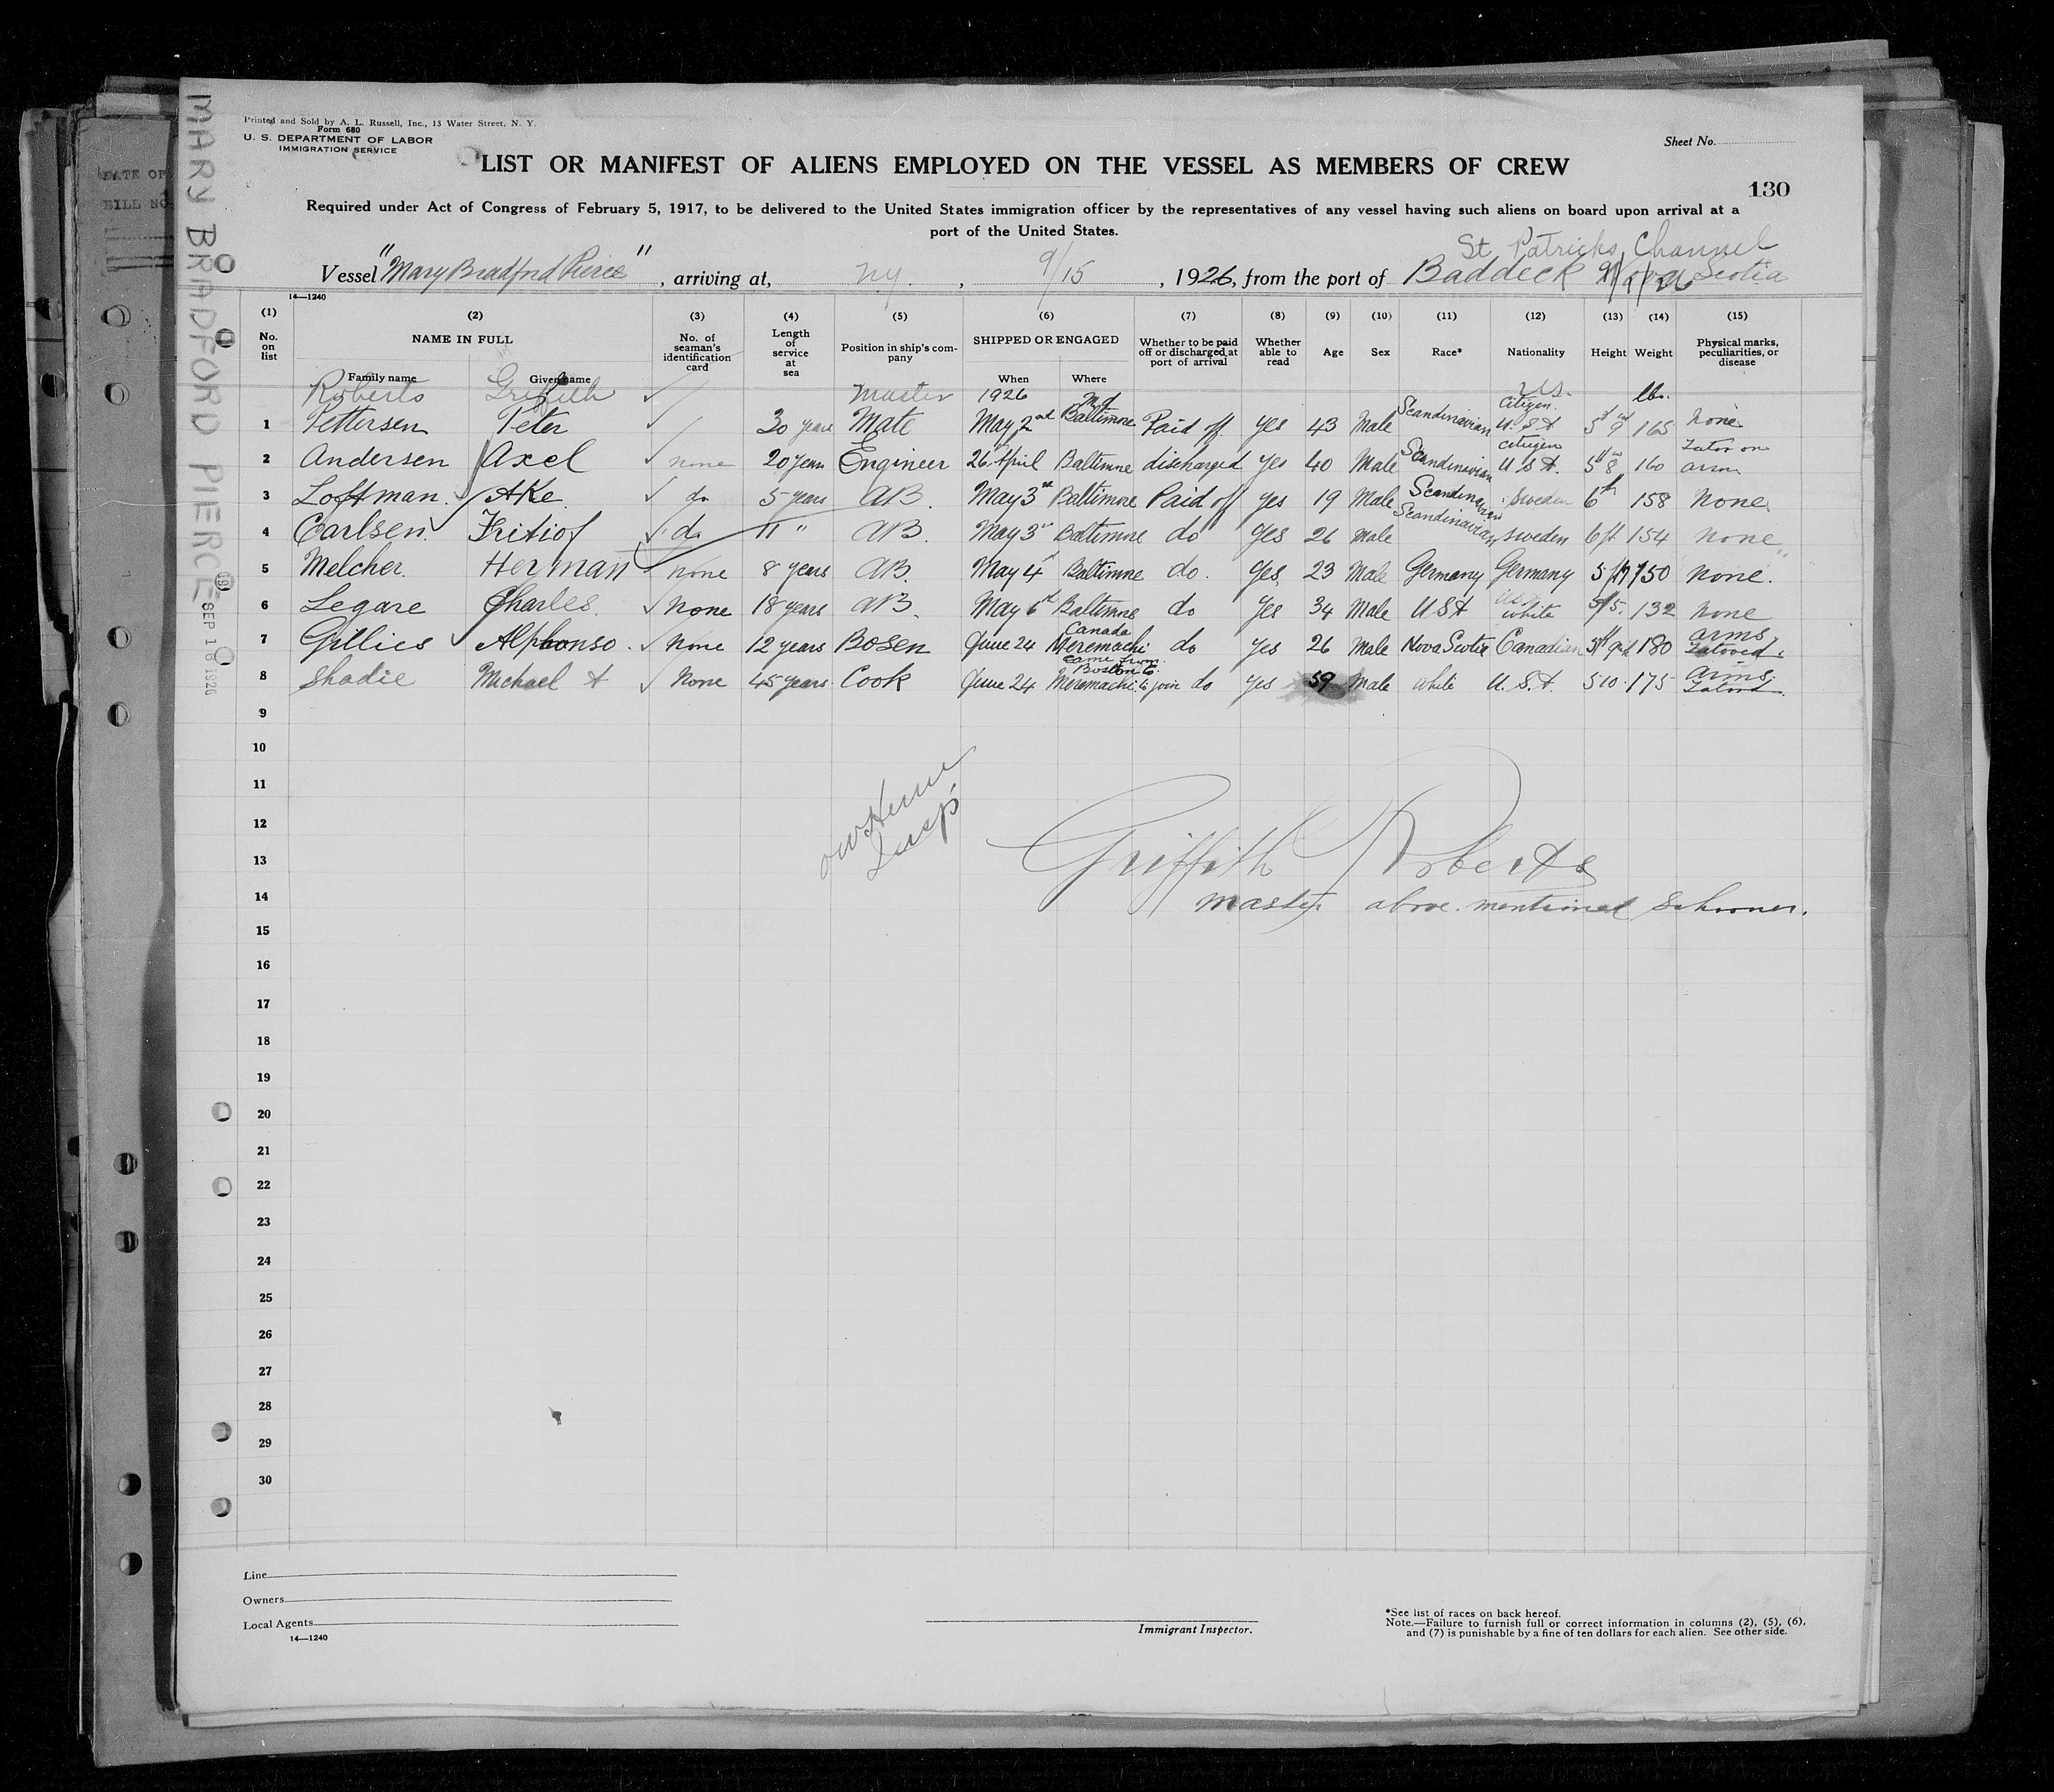 MARY BRADFORD PIERCE
SEP 16 1926
DATE OF
BILL NO.
Printed and Sold by A. L. Russell, Inc., 13 Water Street, N. Y.
Form 680
U. S. DEPARTMENT OF LABOR
IMMIGRATION SERVICE
Sheet No.
LIST OR MANIFEST OF ALIENS EMPLOYED ON THE VESSEL AS MEMBERS OF CREW
130
Required under Act of Congress of February 5, 1917, to be delivered to the United States immigration officer by the representatives of any vessel having such aliens on board upon arrival at a
port of the United States.
St Patricks Channel
Vessel "Mary Bradford Pierce", arriving at, NY., 9/15, 1926, from the port of Baddeck Nova Scotia
14—1240
(1) (2) (3) (4) (5) (6) (7) (8) (9) (10) (11) (12) (13) (14) (15)
No. on list NAME IN FULL No. of seaman's identification card Length of service at sea Position in ship's company SHIPPED OR ENGAGED Whether to be paid off or discharged at port of arrival Whether able to read Age Sex Race* Nationality Height Weight Physical marks, peculiarities, or disease
Family name Given name When Where
Roberts Griffith Master 1926 Md U.S. lbs.
1 Pettersen Peter 30 years Mate May 2nd Baltimore Paid off yes 43 Male Scandinavian citizen U.S.A 5 9 165 None
2 Andersen Axel none 20 years Engineer 26 April Baltimore discharged yes 40 Male Scandinavian citizen U.S.A. 5 8 160 Tatoo on arm
3 Loffman Ake do 5 years AB. May 3rd Baltimore Paid off yes 19 Male Scandinavian Sweden 6ft 158 None
4 Carlsen Fritiof do 11 " AB. May 3rd Baltimore do yes 26 male Scandinavian sweden 6ft 154 none
5 Melcher Herman none 8 years AB. May 4th Baltimore do. yes 23 Male Germany Germany 150 none.
6 Legare Charles none 18 years AB. May 6th Baltimore do yes 34 Male USA white 5/5. 132 none
7 Gillies Alphonso none 12 years Bosen June 24 Canada Meremachi do yes 26 male Nova Scotia Canadian 180 arms Tatooed
8 Shadie Michael A None 45 years Cook June 24 came from Boston to Meremachi to join do yes 59 male white U.S.A. 5 10 175 arms Tatood
9
10
11
12
13
14
15
16
17
18
19
20
21
22
23
24
25
26
27
28
29
30
Insp
Griffith Roberts
master above mentioned Schooner.
Line
Owners
Local Agents
14—1240
Immigrant Inspector.
*See list of races on back hereof.
Note.—Failure to furnish full or correct information in columns (2), (5), (6),
and (7) is punishable by a fine of ten dollars for each alien. See other side.